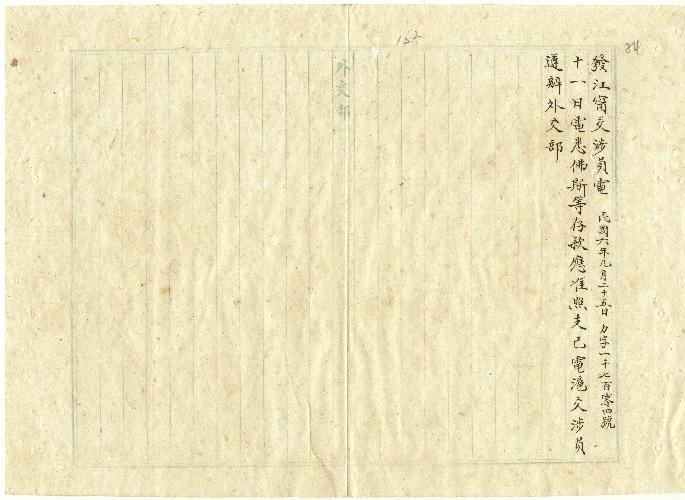 84
122
發江甯交涉員電 民國六年九月二十五日 力字一千七百零四號
十一日電悉佛斯等存款應准照支已電滬交涉員
遵辦外交部
外交部